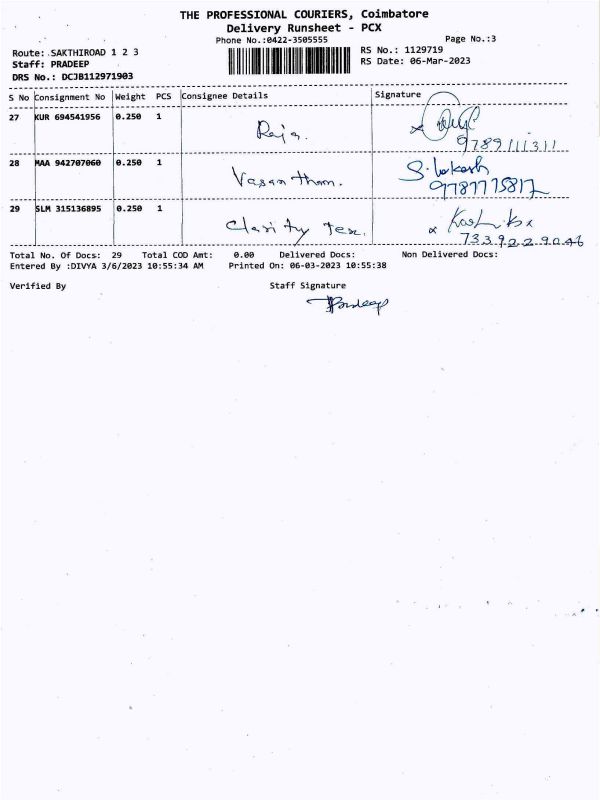 THE PROFESSIONAL COURIERS, Coimbatore
Delivery Runsheet - PCX
Phone No.:0422-3505555
Page No.:3
Route: SAKTHIROAD 1 2 3
RS No.: 1129719
Staff: PRADEEP
RS Date: 06-Mar-2023
DRS No.: DCJB112971903
S No Consignment No Weight PCS Consignee Details Signature
27 KUR 694541956 0.250 1 Raja.
9789111311
28 MAA 942707060 0.250 1 Vasantham. S. Lokesh
9787775817
29 SLM 315136895 0.250 1 Clarity Tex.
7339229046
Total No. Of Docs: 29 Total COD Amt: 0.00 Delivered Docs: Non Delivered Docs:
Entered By :DIVYA 3/6/2023 10:55:34 AM Printed On: 06-03-2023 10:55:38
Verified By Staff Signature
Pradeep